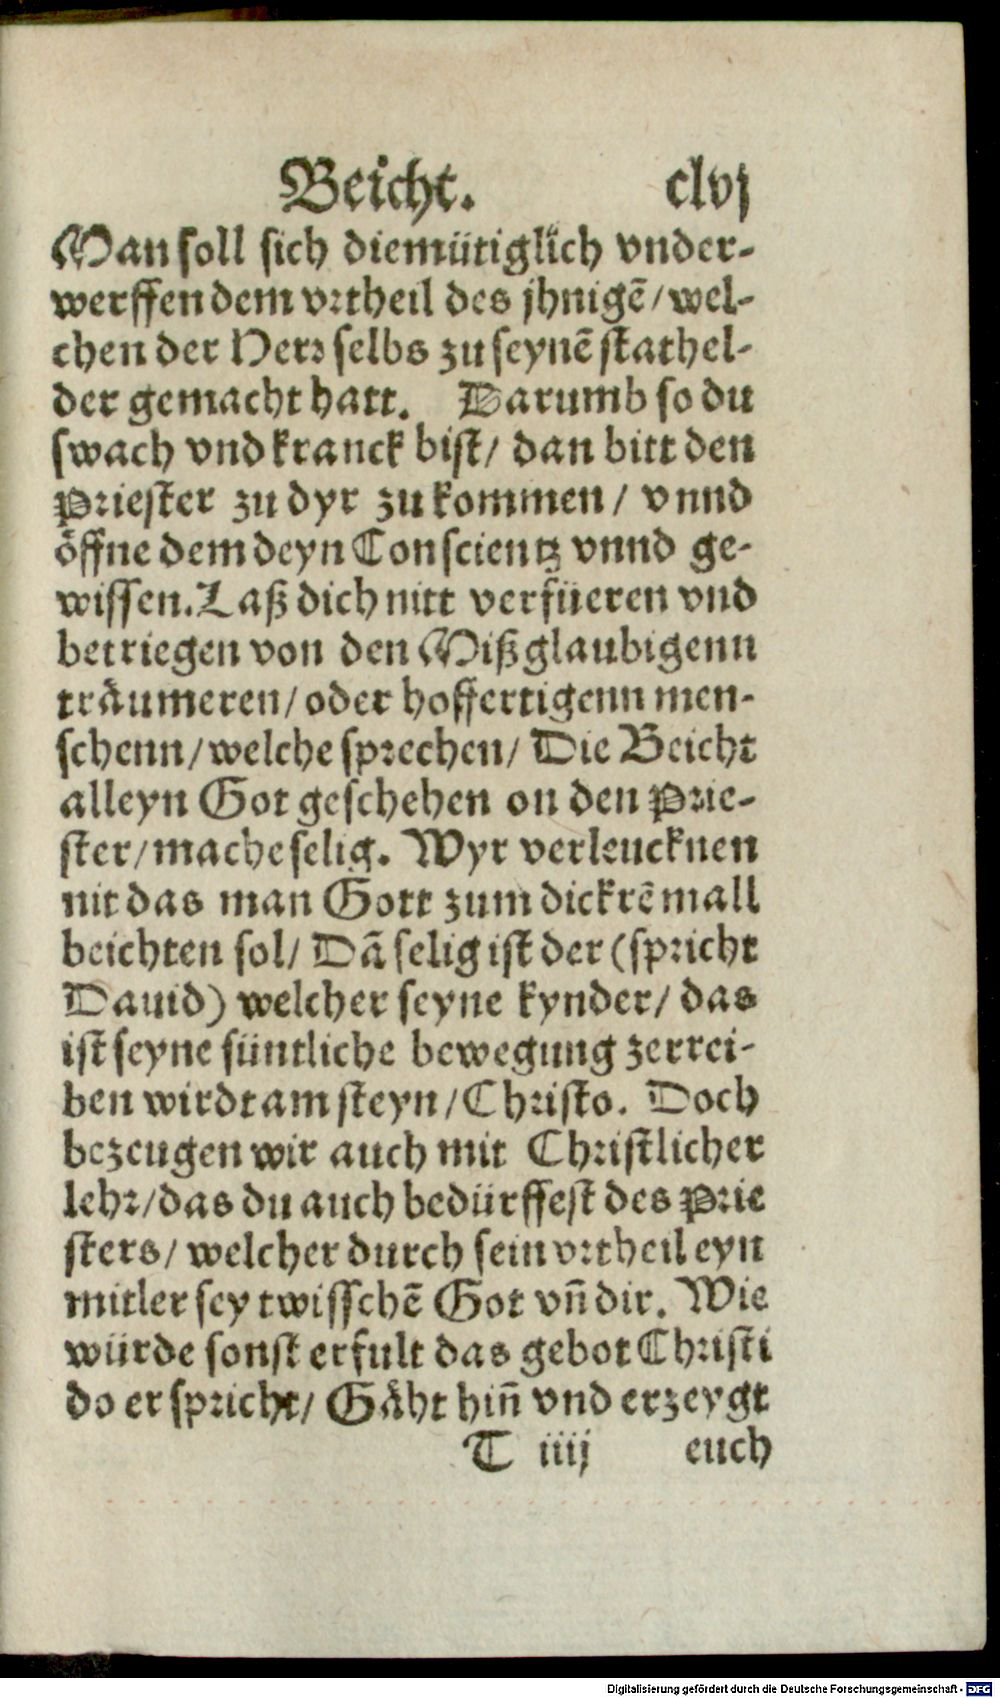 Beicht. clvj
Man soll sich diemütiglich vnder-
werffen dem vrtheil des jhnigẽ/wel-
chen der Herr selbs zu seynẽ stathel-
der gemacht hatt. Darumb so du
swach vnd kranck bist/ dan bitt den
Priester zu dyr zu kommen/ vnnd
öffne dem deyn Conscientz vnnd ge-
wissen. Laß dich nitt verfüeren vnd
betriegen von den Mißglaubigenn
träumeren/oder hoffertigenn men-
schenn/welche sprechen/ Die Beicht
alleyn Got geschehen on den Prie-
ster/mache selig. Wyr verleucknen
nit das man Gott zum dickrẽ mall
beichten sol/ Dã selig ist der (spricht
Dauid) welcher seyne kynder/ das
ist seyne süntliche bewegung zerrei-
ben wirdt am steyn/Christo. Doch
bezeugen wir auch mit Christlicher
lehr/das du auch bedürffest des Prie
sters/ welcher durch sein vrtheil eyn
mitler sey twisschẽ Got vñ dir. Wie
würde sonst erfult das gebot Christi
do er spricht/ Gäht hiñ vnd erzeygt
T iiij euch
Digitalisierung gefördert durch die Deutsche Forschungsgemeinschaft - DFG